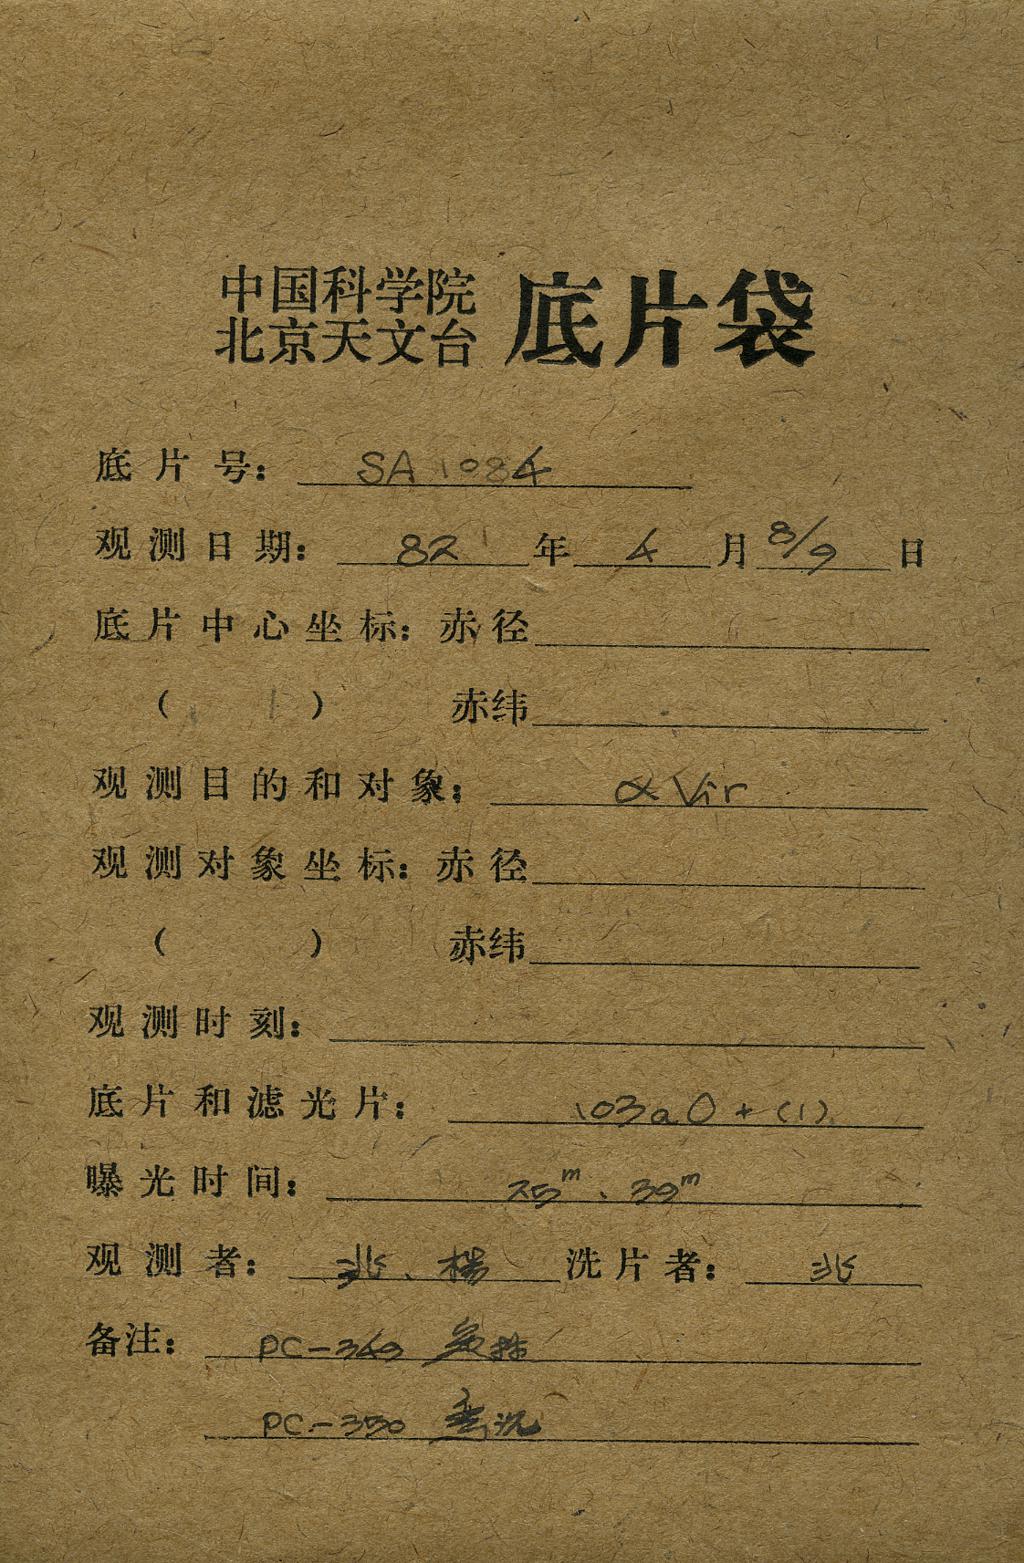 中国科学院
北京天文台 底片袋
底片号: SA 1084
观测日期: 82 年 4 月 8/9 日
底片中心坐标: 赤径
( ) 赤纬
观测目的和对象: α Vir
观测对象坐标: 赤径
( ) 赤纬
观测时刻:
底片和滤光片: 103aO + (1)
曝光时间: 25m、30m
观测者: 兆、杨 洗片者: 兆
备注: PC-
PC-350